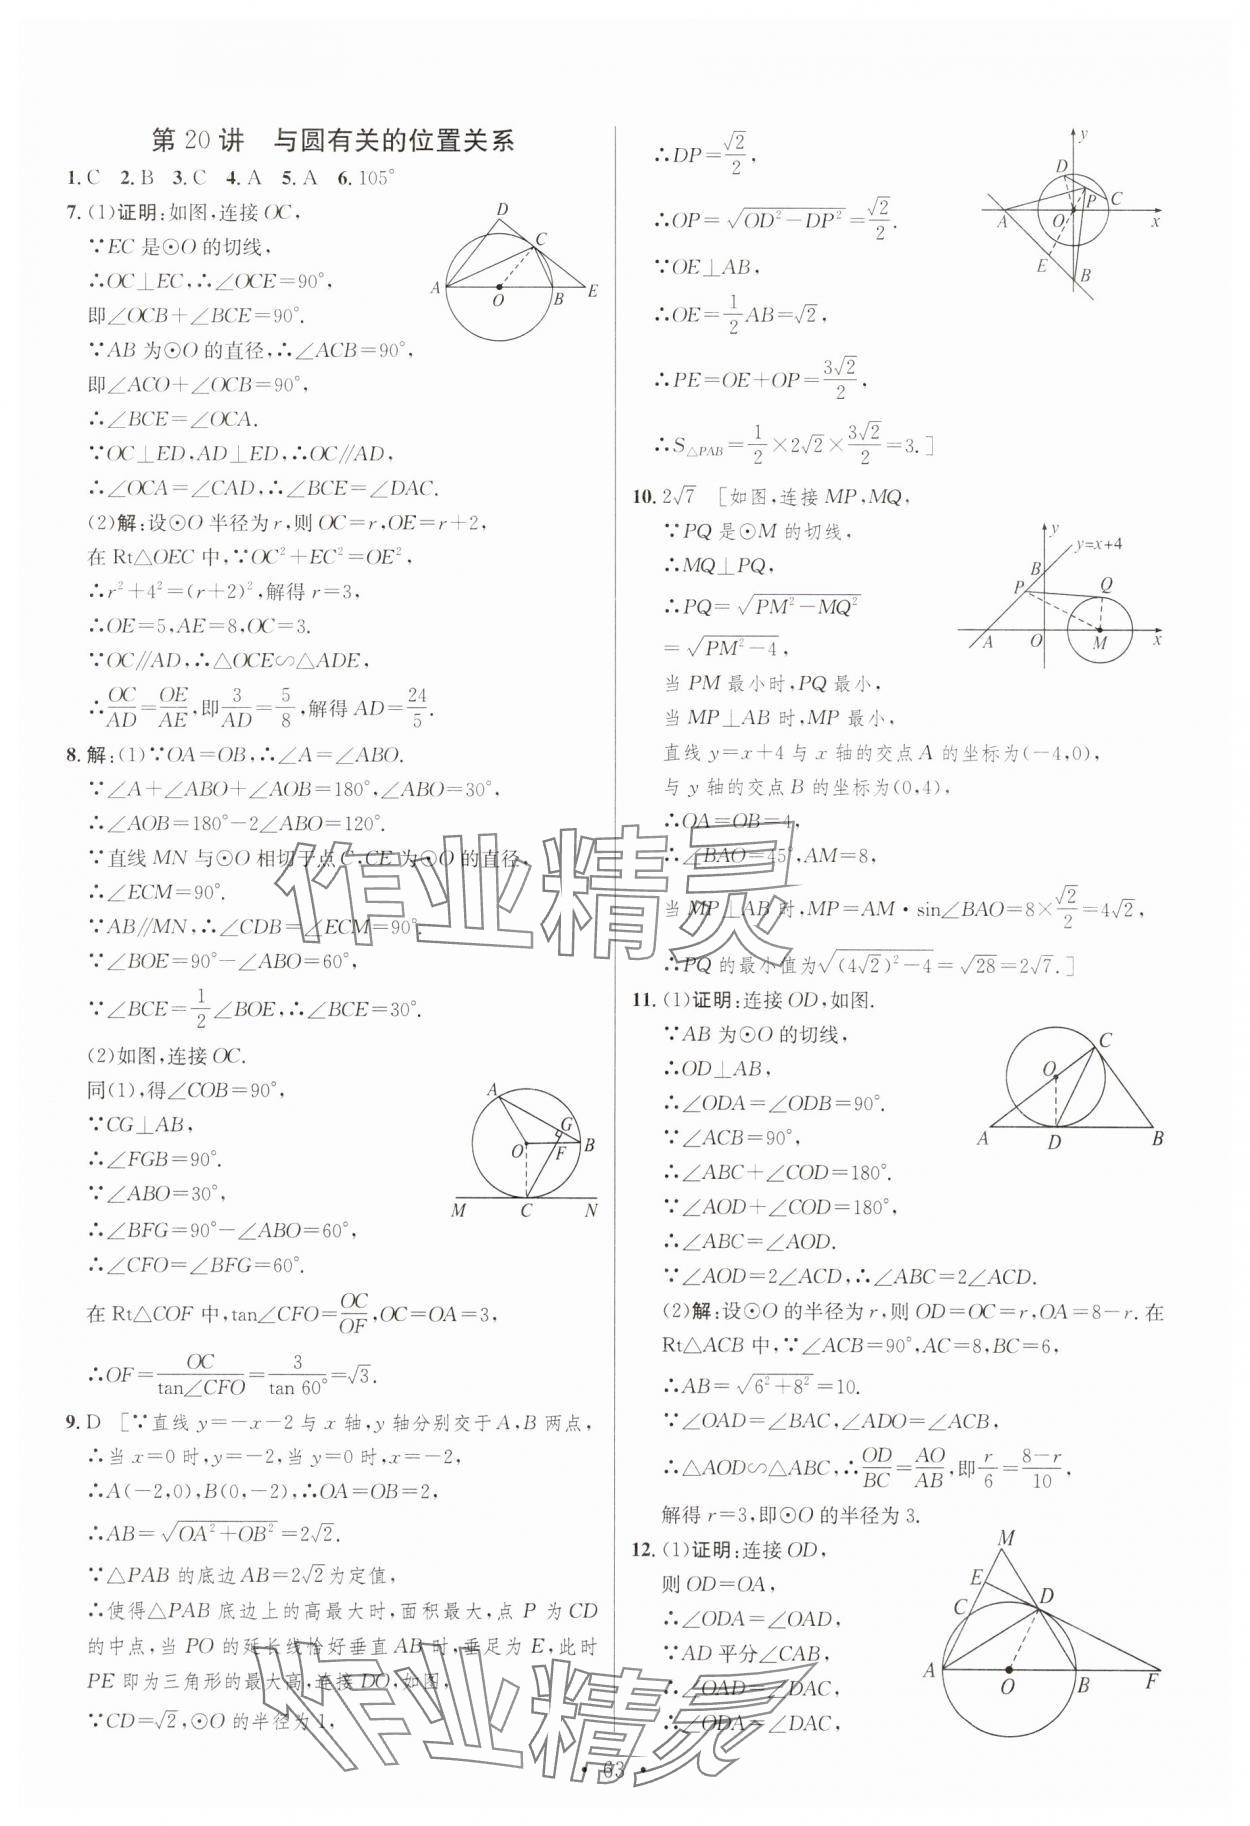 第 20 讲　与圆有关的位置关系
1. C　2. B　3. C　4. A　5. A　6. 105°
7. (1)证明:如图,连接 OC,
∵EC 是⊙O 的切线,
∴OC⊥EC,∴∠OCE=90°,
即∠OCB+∠BCE=90°.
∵AB 为⊙O 的直径,∴∠ACB=90°,
即∠ACO+∠OCB=90°,
∴∠BCE=∠OCA.
∵OC⊥ED,AD⊥ED,∴OC∥AD,
∴∠OCA=∠CAD,∴∠BCE=∠DAC.
(2)解:设⊙O 半径为 r,则 OC=r,OE=r+2,
在 Rt△OEC 中,∵OC²+EC²=OE²,
∴r²+4²=(r+2)²,解得 r=3,
∴OE=5,AE=8,OC=3.
∵OC∥AD,∴△OCE∽△ADE,
∴OC/AD=OE/AE,即3/AD=5/8,解得 AD=24/5.
D
C
A
O
B
E
8. 解:(1)∵OA=OB,∴∠A=∠ABO.
∵∠A+∠ABO+∠AOB=180°,∠ABO=30°,
∴∠AOB=180°-2∠ABO=120°.
∵直线 MN 与⊙O 相切于点 C,CE 为⊙O 的直径,
∴∠ECM=90°.
∵AB∥MN,∴∠CDB=∠ECM=90°.
∴∠BOE=90°-∠ABO=60°.
∵∠BCE=1/2∠BOE,∴∠BCE=30°.
(2)如图,连接 OC.
同(1),得∠COB=90°,
∵CG⊥AB,
∴∠FGB=90°.
∵∠ABO=30°,
∴∠BFG=90°-∠ABO=60°.
∴∠CFO=∠BFG=60°.
在 Rt△COF 中,tan∠CFO=OC/OF,OC=OA=3,
∴OF=OC/tan∠CFO=3/tan 60°=√3.
A
G
O
F
B
M
C
N
9. D　[∵直线 y=-x-2 与 x 轴,y 轴分别交于 A,B 两点,
∴当 x=0 时,y=-2,当 y=0 时,x=-2,
∴A(-2,0),B(0,-2),∴OA=OB=2,
∴AB=√(OA²+OB²)=2√2.
∵△PAB 的底边 AB=2√2为定值,
∴使得△PAB 底边上的高最大时,面积最大,点 P 为 CD
的中点,当 PO 的延长线恰好垂直 AB 时,垂足为 E,此时
PE 即为三角形的最大高,连接 DO,如图,
∵CD=√2,⊙O 的半径为 1,
∴DP=√2/2,
∴OP=√(OD²-DP²)=√2/2.
∵OE⊥AB,
∴OE=1/2 AB=√2,
∴PE=OE+OP=3√2/2,
∴S△PAB=1/2×2√2×3√2/2=3.]
y
D
P
C
A
O
x
E
B
10. 2√7　[如图,连接 MP,MQ,
∵PQ 是⊙M 的切线,
∴MQ⊥PQ,
∴PQ=√(PM²-MQ²)
=√(PM²-4),
当 PM 最小时,PQ 最小,
当 MP⊥AB 时,MP 最小,
直线 y=x+4 与 x 轴的交点 A 的坐标为(-4,0),
与 y 轴的交点 B 的坐标为(0,4),
∴OA=OB=4,
∴∠BAO=45°,AM=8,
当 MP⊥AB 时,MP=AM·sin∠BAO=8×√2/2=4√2,
∴PQ 的最小值为√((4√2)²-4)=√28=2√7.]
y
y=x+4
B
P
Q
A
O
M
x
11. (1)证明:连接 OD,如图.
∵AB 为⊙O 的切线,
∴OD⊥AB,
∴∠ODA=∠ODB=90°.
∵∠ACB=90°,
∴∠ABC+∠COD=180°.
∵∠AOD+∠COD=180°,
∴∠ABC=∠AOD.
∵∠AOD=2∠ACD,∴∠ABC=2∠ACD.
(2)解:设⊙O 的半径为 r,则 OD=OC=r,OA=8-r. 在
Rt△ACB 中,∵∠ACB=90°,AC=8,BC=6,
∴AB=√(6²+8²)=10.
∵∠OAD=∠BAC,∠ADO=∠ACB,
∴△AOD∽△ABC,∴OD/BC=AO/AB,即r/6=(8-r)/10,
解得 r=3,即⊙O 的半径为 3.
C
O
A
D
B
12. (1)证明:连接 OD,
则 OD=OA,
∴∠ODA=∠OAD,
∵AD 平分∠CAB,
∴∠OAD=∠DAC,
∴∠ODA=∠DAC,
M
E
C
D
A
O
B
F
作业精灵
作业精灵
• 63 •